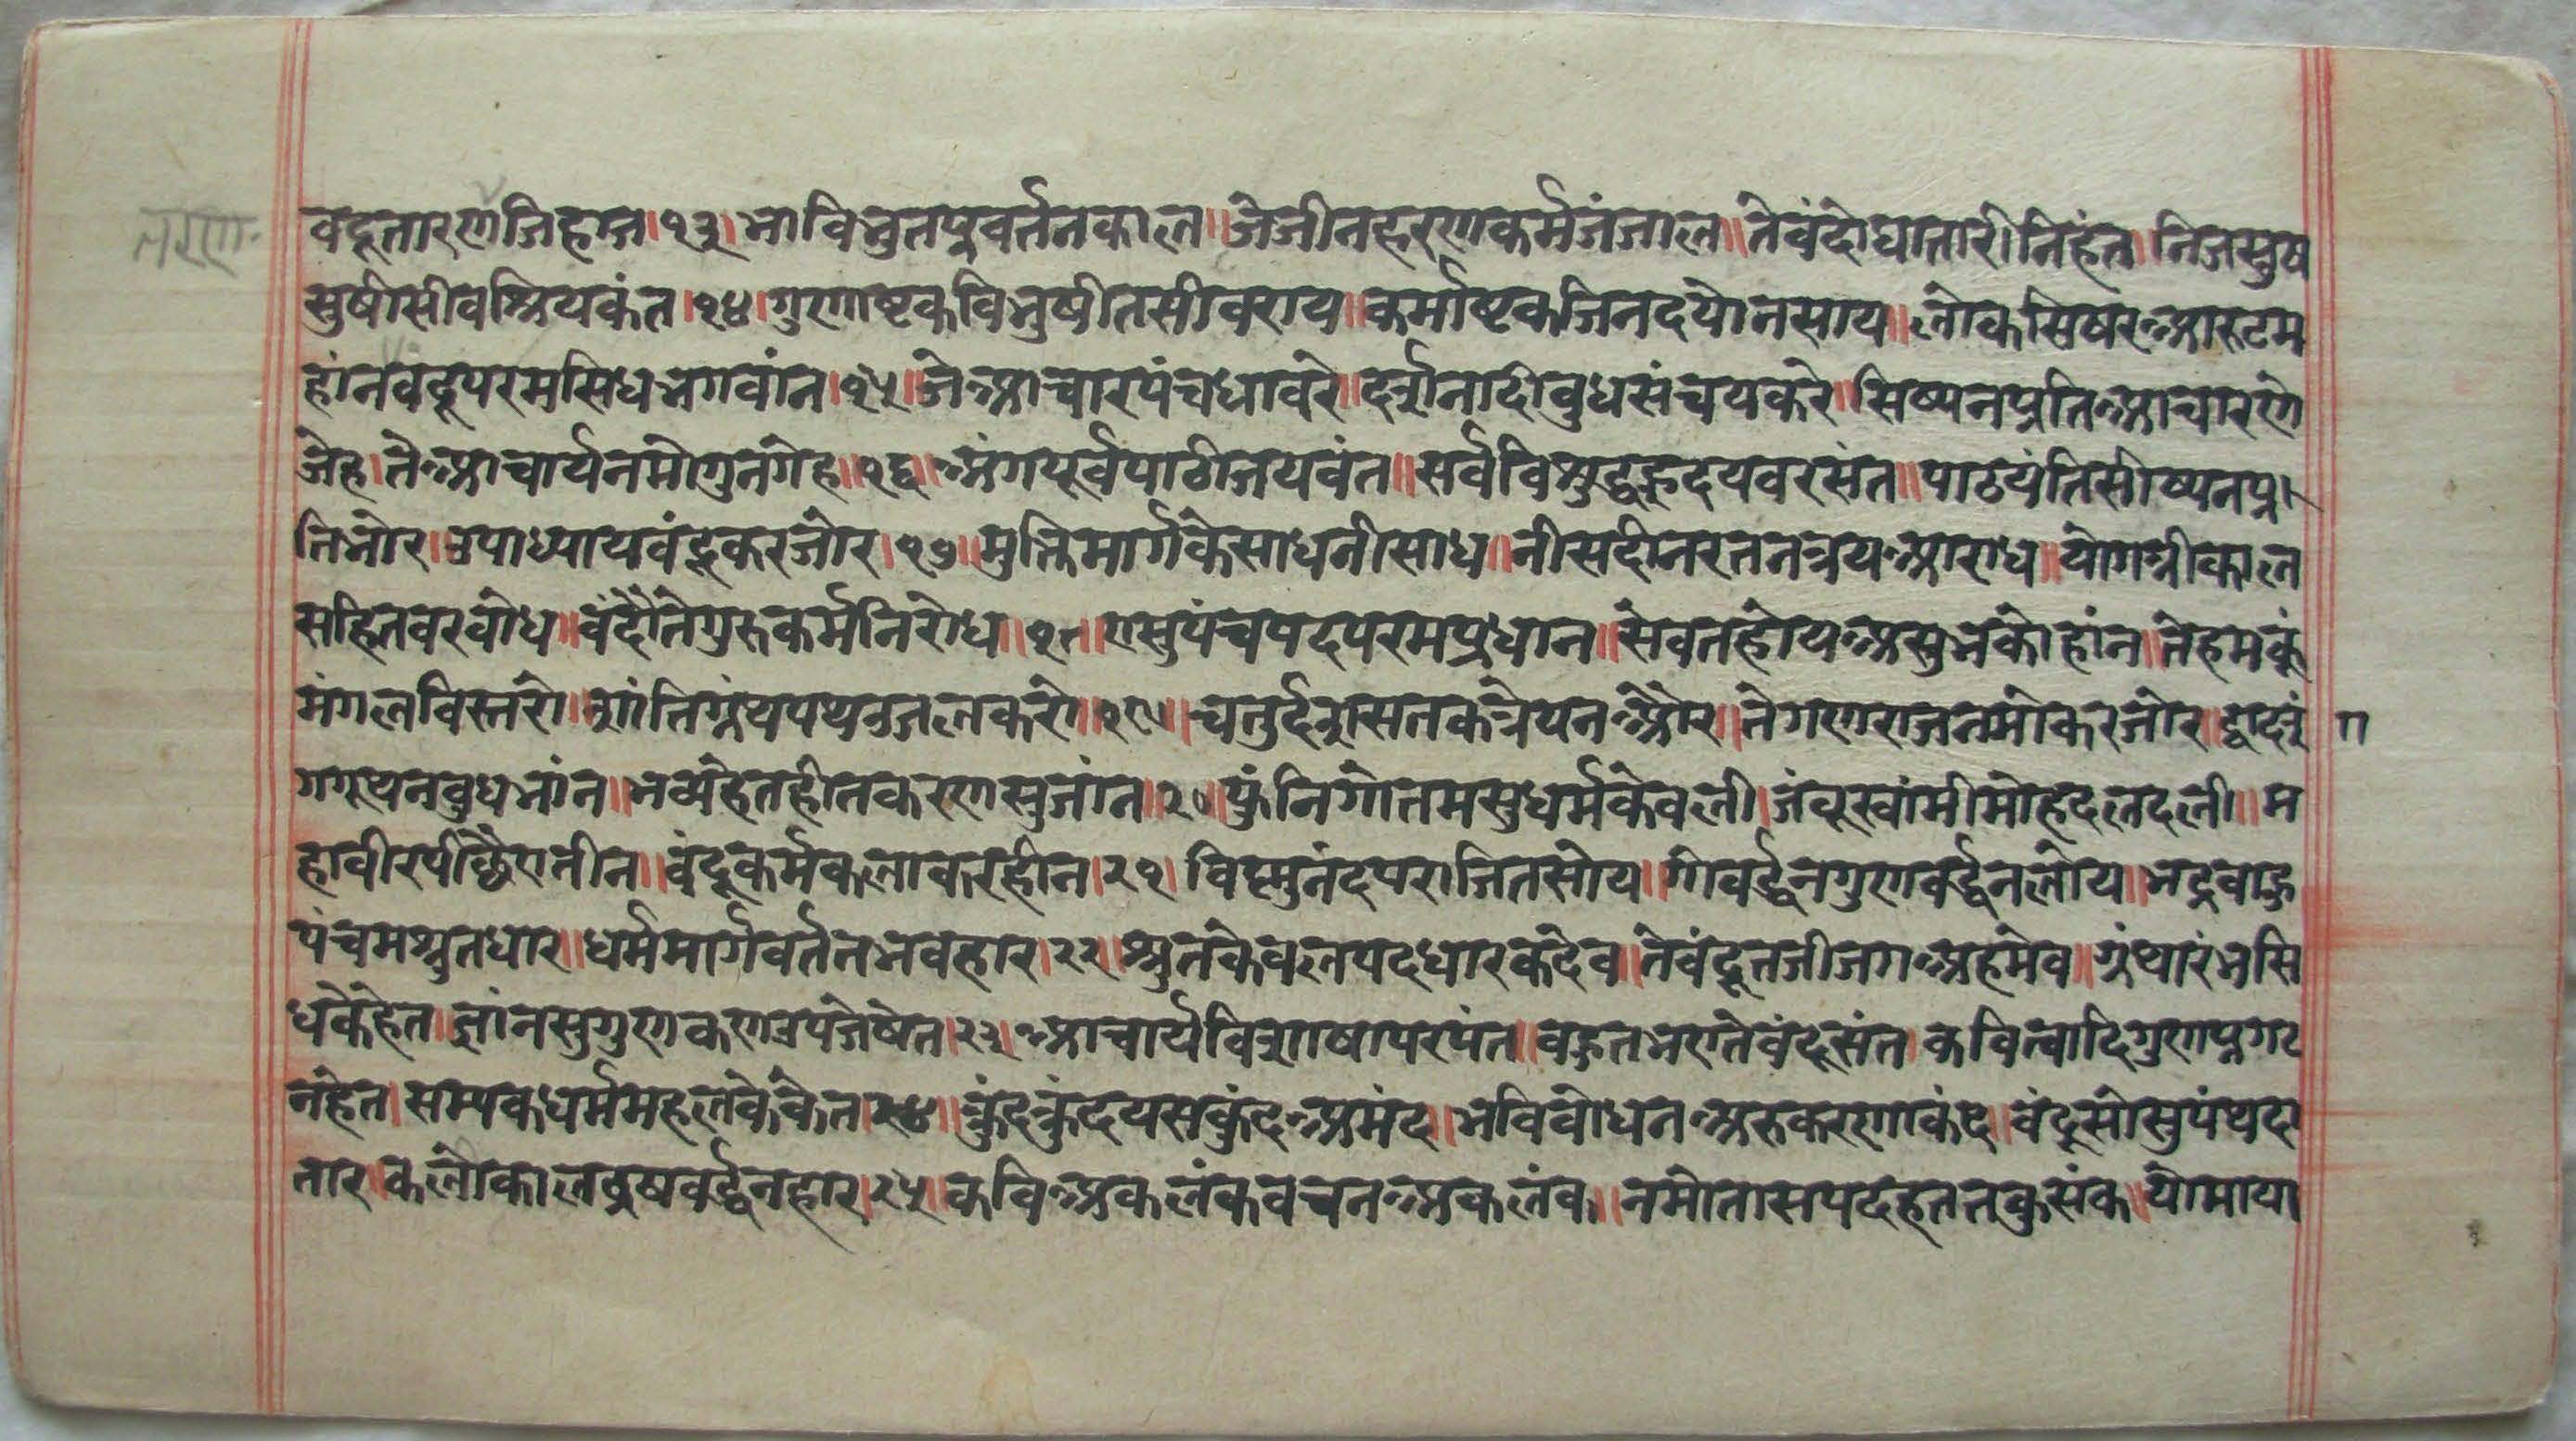 तरण
वंदूतारणजिहाज।१३।भाविभुतप्रवर्तनकाल॥जेजीनहरणकर्मजंजाल॥तेवंदोघातारीनिहंत॥निजसुष
सुर्षासीवश्रियकंत॥१४॥गुणाष्टकविभुषीतसीवराय॥कर्माष्टकजिनदयोनसाय॥लोकसिषरआरुटम
हांनवंदूपरमसिधभगवांन।१५॥जेआचारपंचधावरे॥दर्शनादीबुधसंचयकरे॥सिष्यनप्रतिआचारणे
जेह।तेआचार्यनमोगुनगेह॥१६॥अंगपूर्वपाठीजयवंत॥सर्वविशुद्धहृदयवरसंत॥पाठयंतिसीष्यनप्र
तिभोर।उपाध्यायवंदूकरजोर।१७॥मुक्तिमार्गकेसाधनीसाध॥नीसदीनरतनत्रयआराध॥योगत्रीकाल
सहितवरबोध॥वंदौतेगुरुकर्मनिरोध॥१८॥एसुपंचपदपरमप्रधान॥सेवतहोयअसुभकोहांन॥तेहमकूं
मंगलविस्तरो॥शांतिग्रंथपथउजलकरो॥१९॥चतुर्दशसतकत्रेयनऔर॥तेगणराजनमोकरजोर॥द्वादशं
ग
गगूथनबुधभांन॥भव्यहेतहीतकरणसुजांन॥२०॥फुंनिगोतमसुधर्मकेवली॥जंबूस्वांमीमोहदलदली॥म
हावीरपीछैएतीन॥वंदूकर्मकलाकरहीन।२१।विष्णुनंदपराजितसोय॥गोवर्द्धनगुणवर्द्धनलोय॥भद्रबाहु
पंचमश्रुतधार॥धर्ममार्गवर्तनभवहार।२२॥श्रुतकेवलपदधारकदेव॥तेवंदूतजीजगअहमेव॥ग्रंथारंभसि
धकेहेत॥ज्ञांनसुगुणकणउपजेषेत।२३॥आचार्यविशाषापरपंत॥वहुतभएतेवंदूसंत॥कवित्वादिगुणप्रगट
नहेत॥सम्यकधर्ममहलकेकेत॥२४॥कुंदकुंदयसकुंदअमंद॥भविबोधनअरुकरणाकंद॥वंदूसोसुपंथदा
तार॥कलीकालवृषवर्द्धनहार।२५॥कविअकलंकवचनअकलंक॥नमोतासपदहततकुसंक॥योमाया